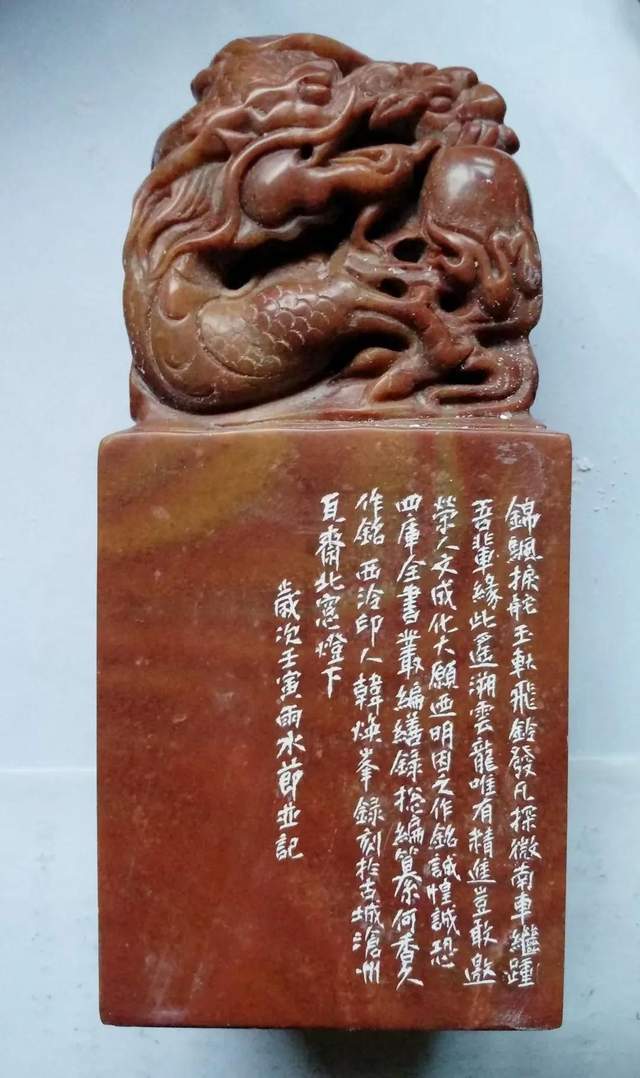 錦颿捩舵玉軑飛鈴發凡探微南車繼踵
吾輩緣此遥溯雲龍唯有精進豈敢邀
榮人文成化大願亟明因之作銘誠惶誠恐
四庫全書叢編繕錄捴編纂何香久
作銘西泠印人韓煥峯錄刻於古城滄州
瓦齋北窗燈下
歲次壬寅雨水節並記